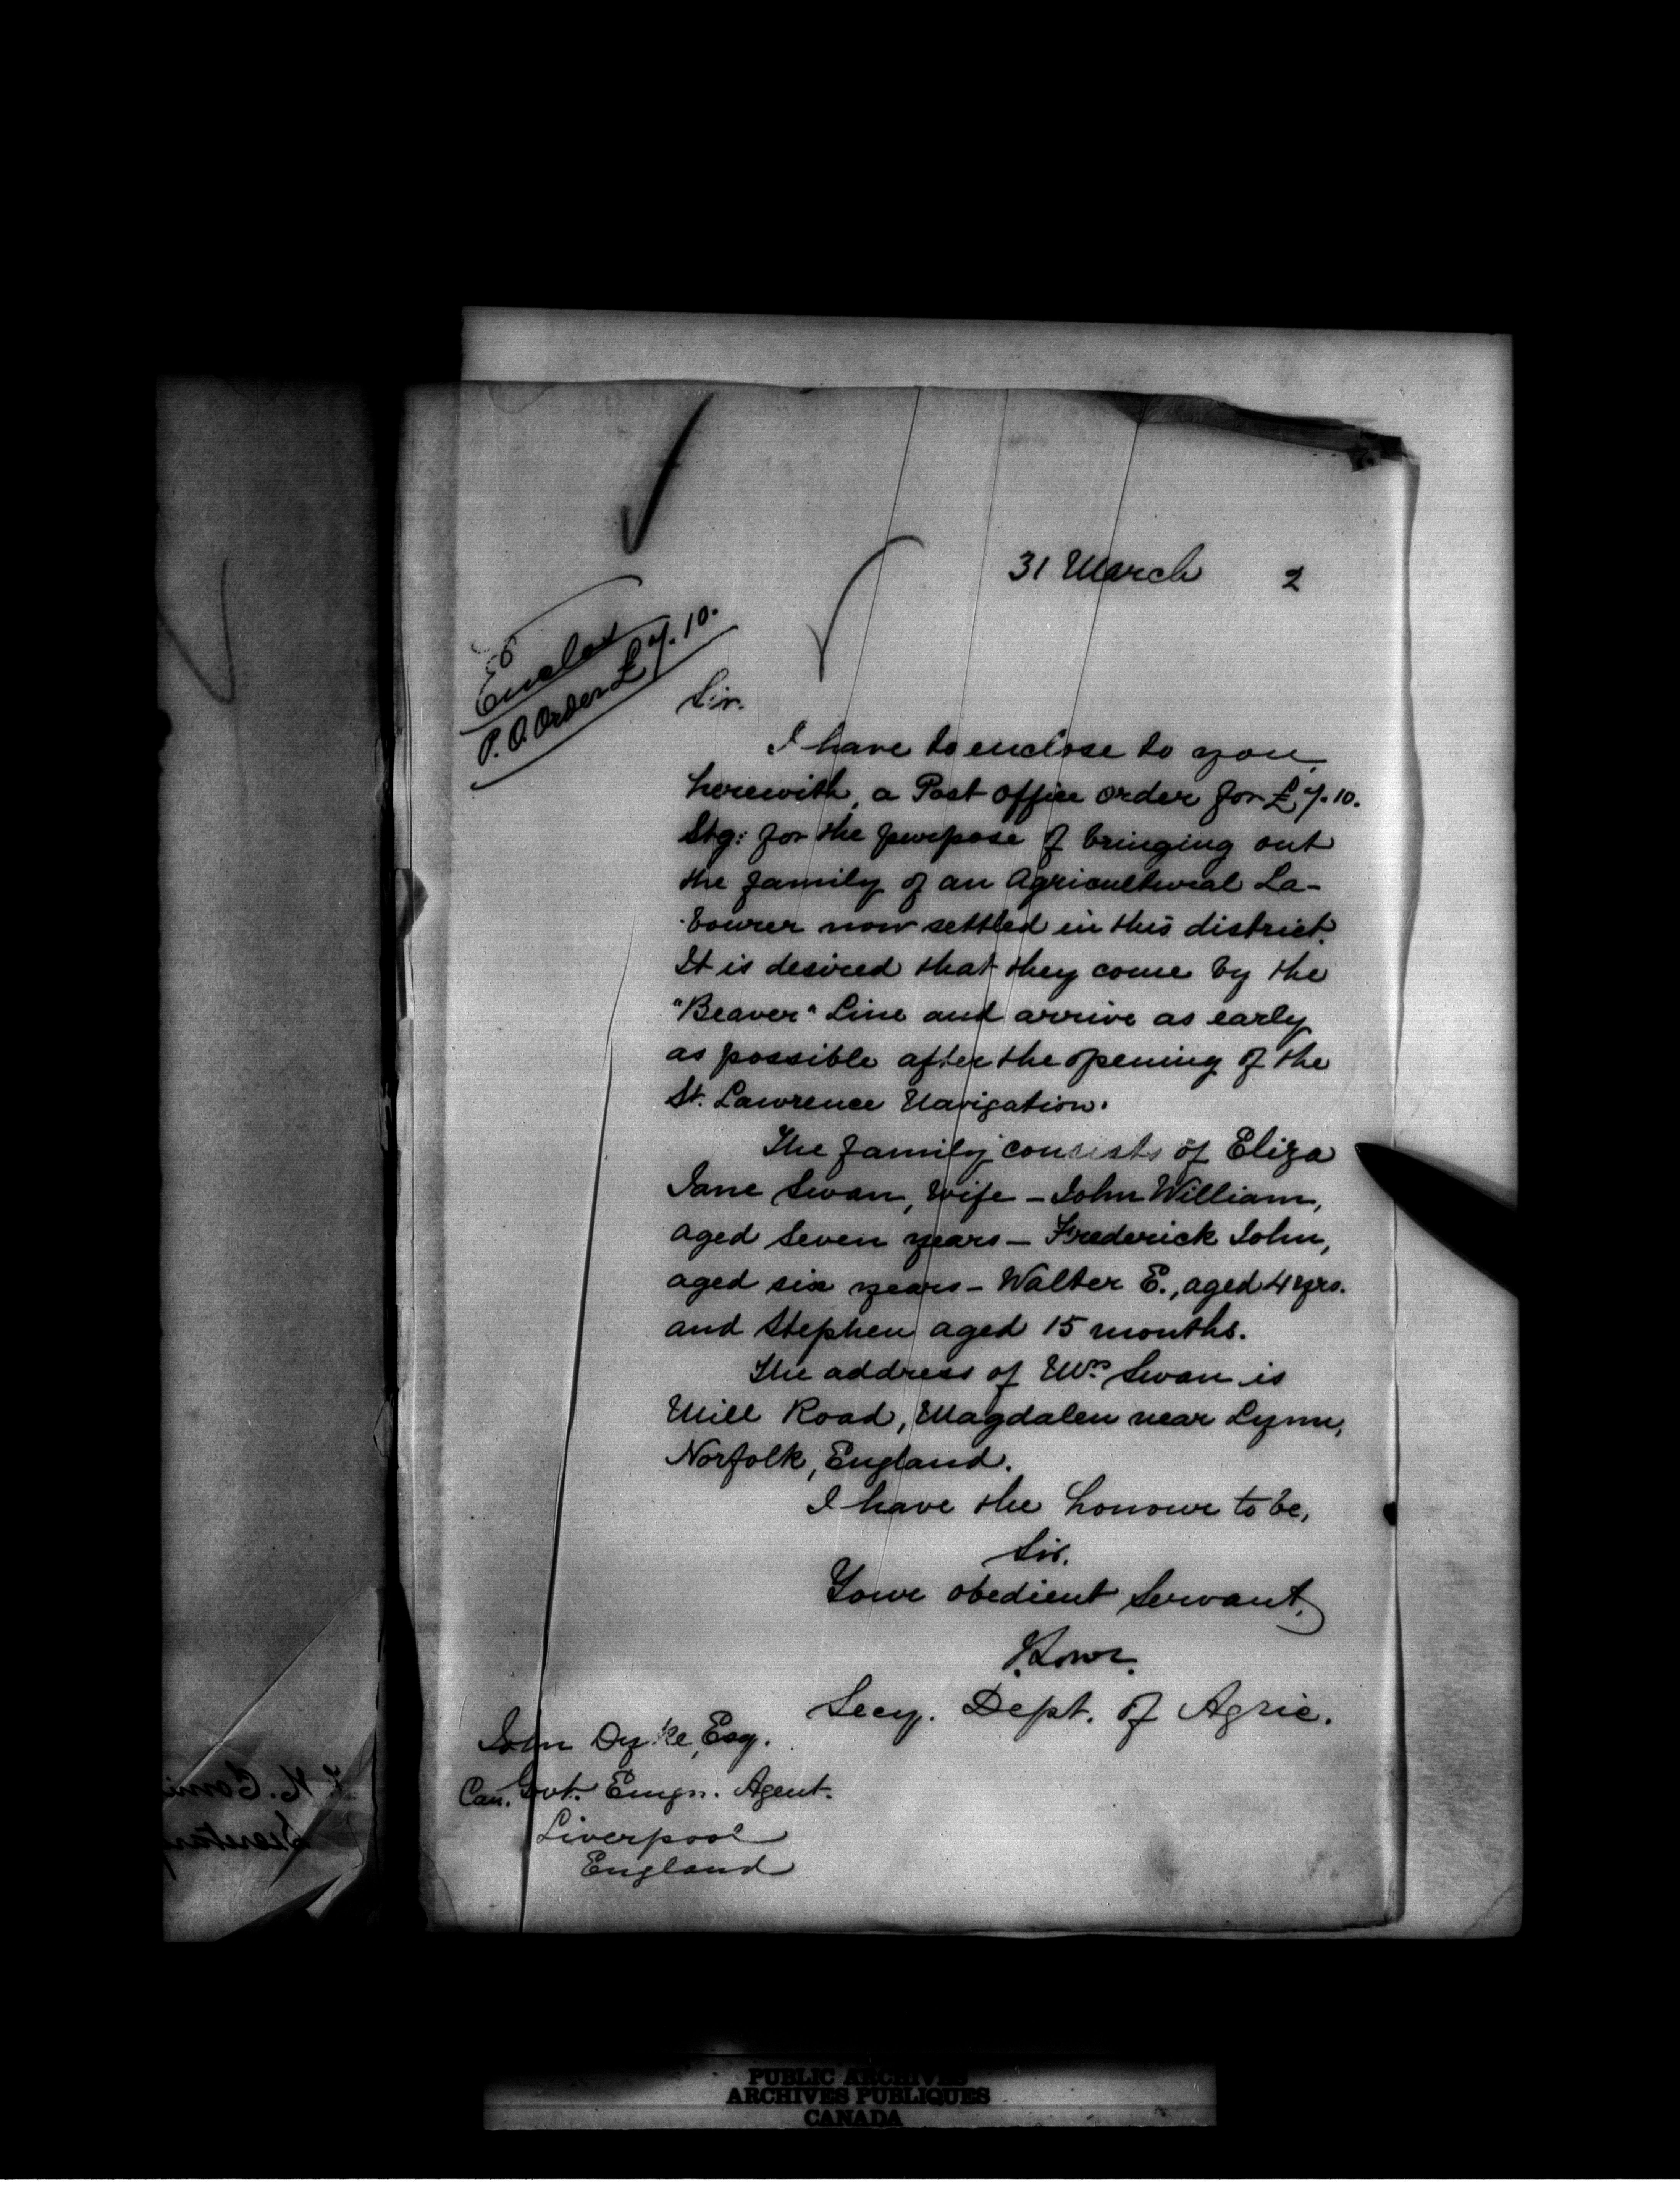 31 March 2
Enclos
P.O. Order £7.10.
Sir.
I have to enclose to you,
herewith, a Post office order for £7.10.
Stg: for the purpose of bringing out
the family of an Agricultural La-
bourer now settled in this district.
It is desired that they come by the
"Beaver" Line and arrive as early
as possible after the opening of the
St. Lawrence Navigation.
The family consists of Eliza
Jane Swan, Wife - John William,
aged Seven years - Frederick John,
aged six years - Walter E., aged 4 yrs.
and Stephen aged 15 months.
The address of Mrs Swan is
Mill Road, Magdalen near Lynn,
Norfolk, England.
I have the honour to be,
Sir.
Your obedient Servant,
J. Lowe.
Secy. Dept. of Agric.
John Dyke, Esq.
Can. Govt. Emgn. Agent.
Liverpool
England
PUBLIC ARCHIVES
ARCHIVES PUBLIQUES
CANADA